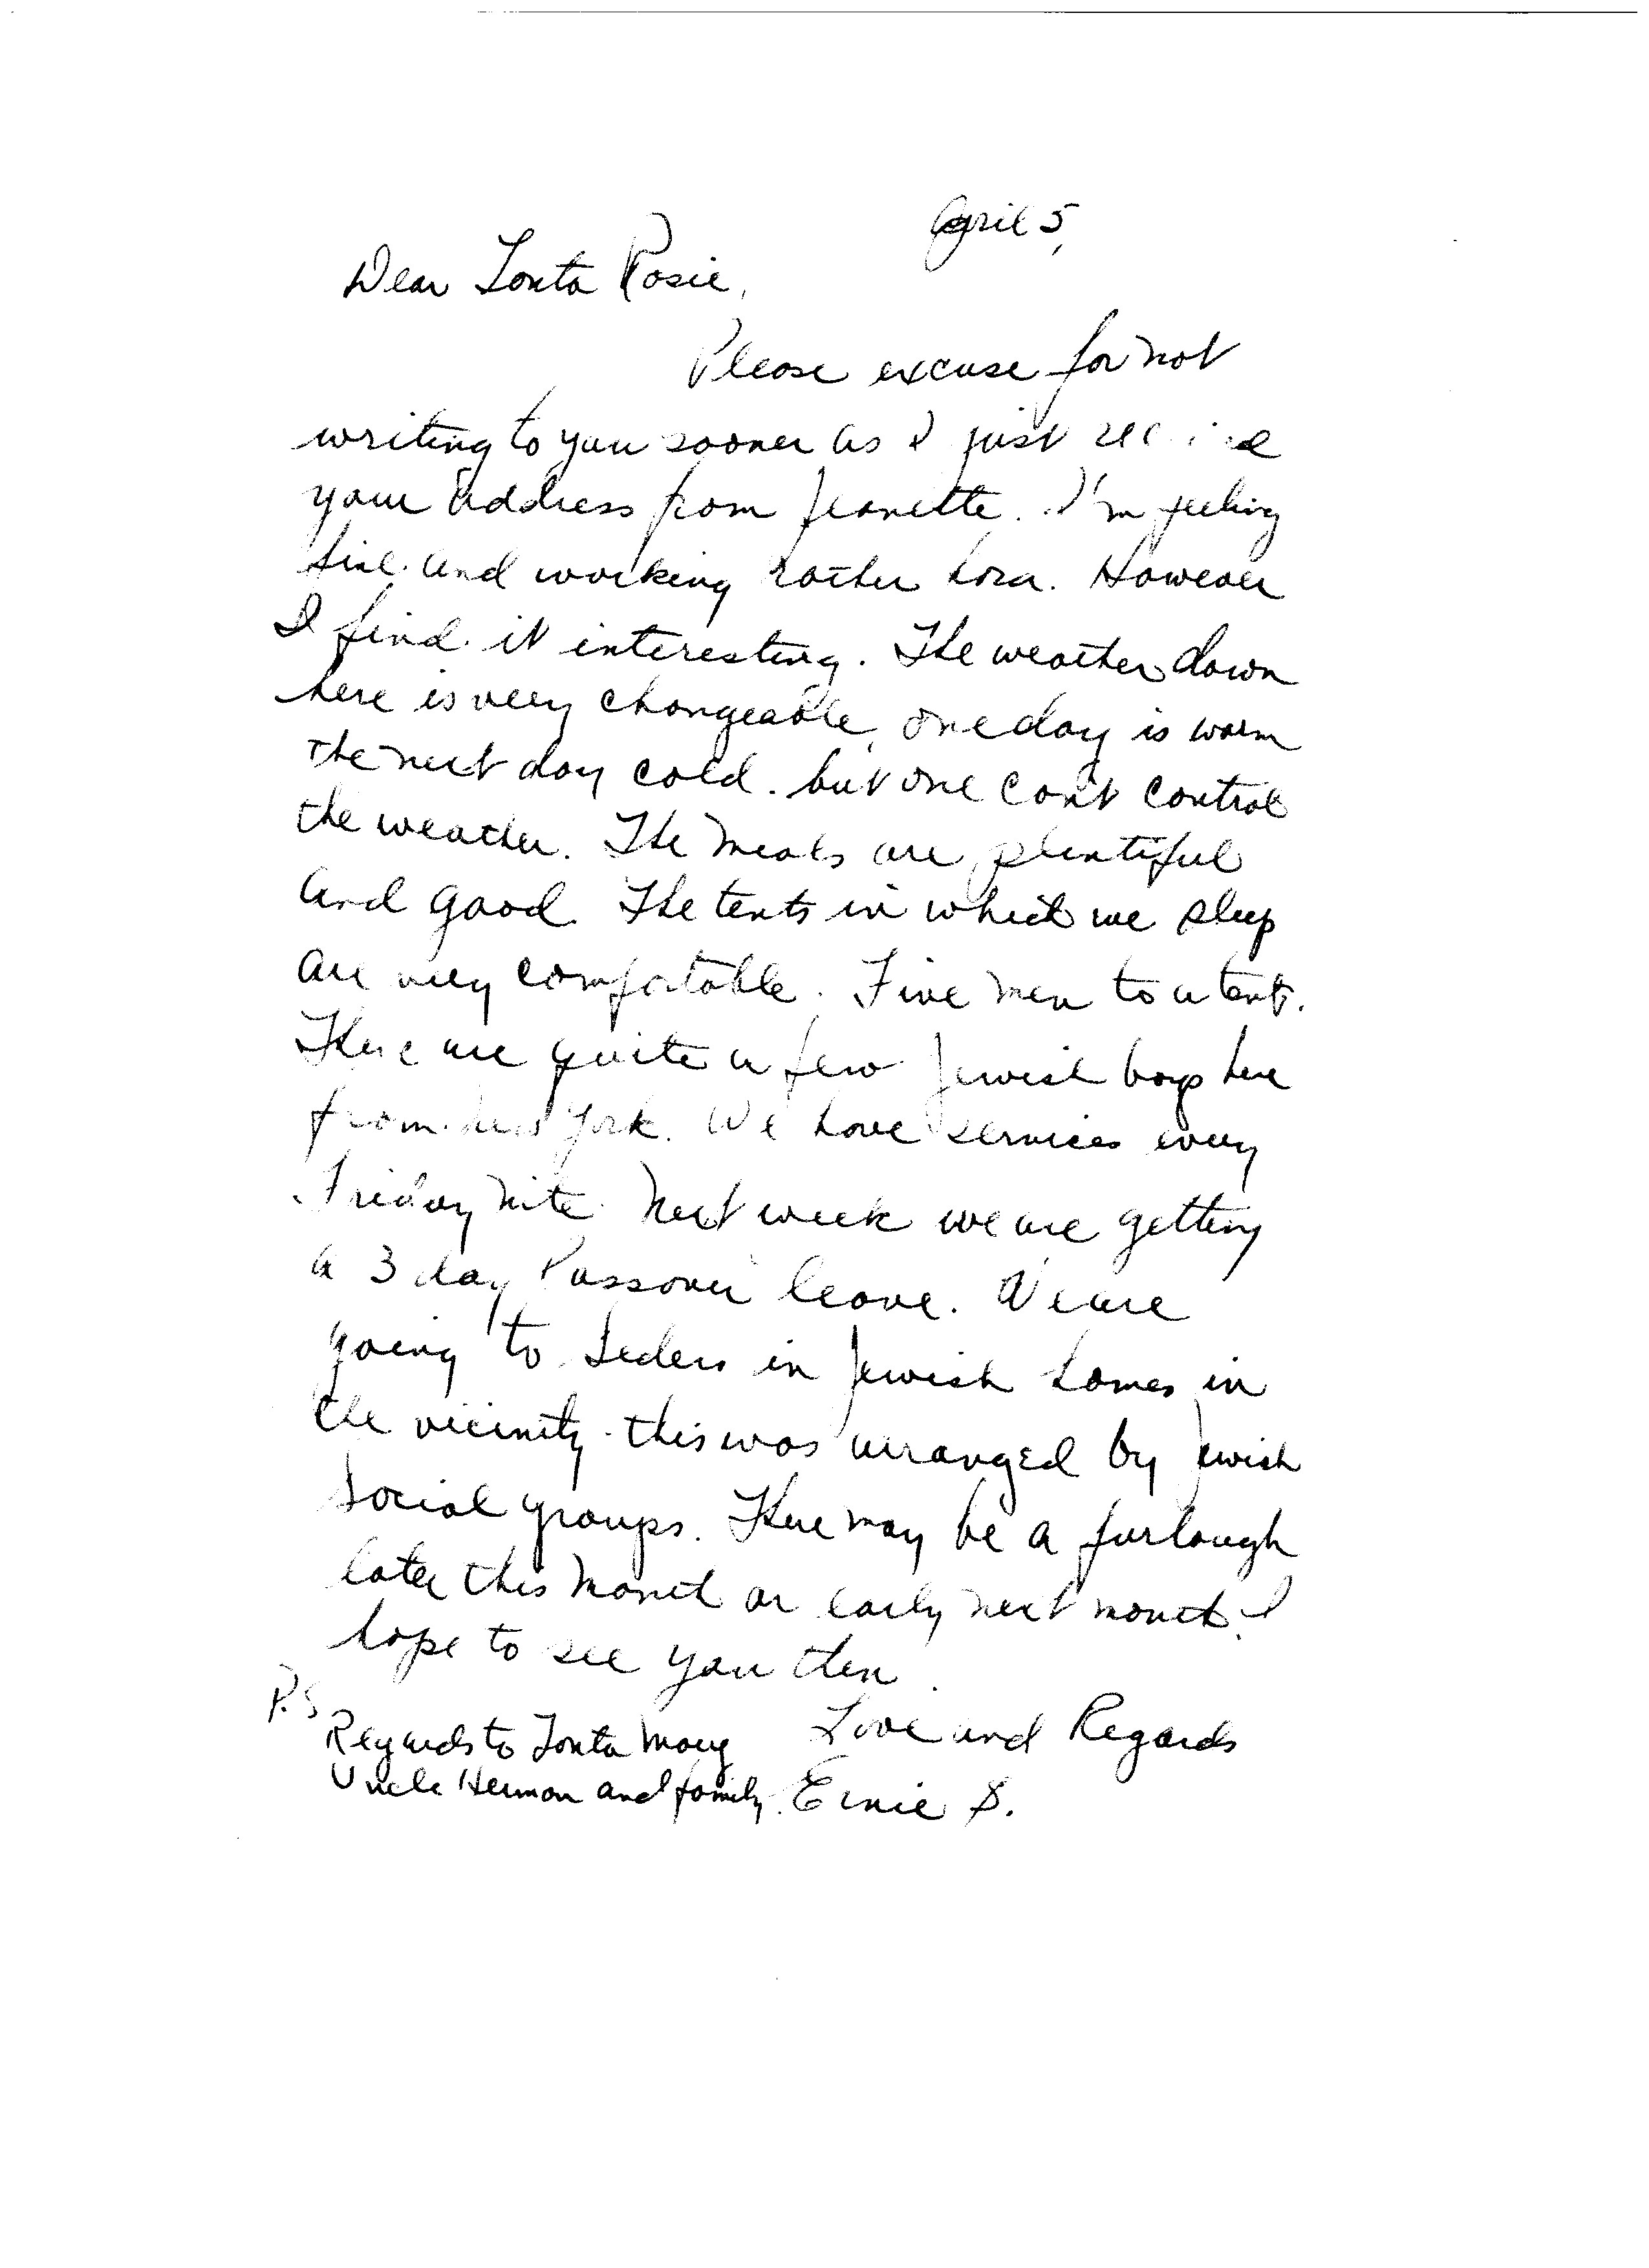 April 5,
Dear Tanta Rosie,
Please excuse for not
writing to you sooner as I just
your address from Jeanette. I'm feeling
fine and working rather hard. However
I find it interesting. The weather down
here is very changeable, one day is warm
the next day cold. but one can't control
the weather. The meals are plentiful
and good. The tents in which we sleep
are very comfortable. Five men to a tent.
There are quite a few Jewish boys here
from new York. We have services every
Friday nite. Next week we are getting
a 3 day Passover leave. We are
going to Seders in Jewish homes in
the vicinity. this was arranged by Jewish
social groups. There may be a furlough
later this month or early next month. I
hope to see you then.
Love and Regards
Ernie S.
P.S
Regards to Tanta Mary
Uncle Herman and family.